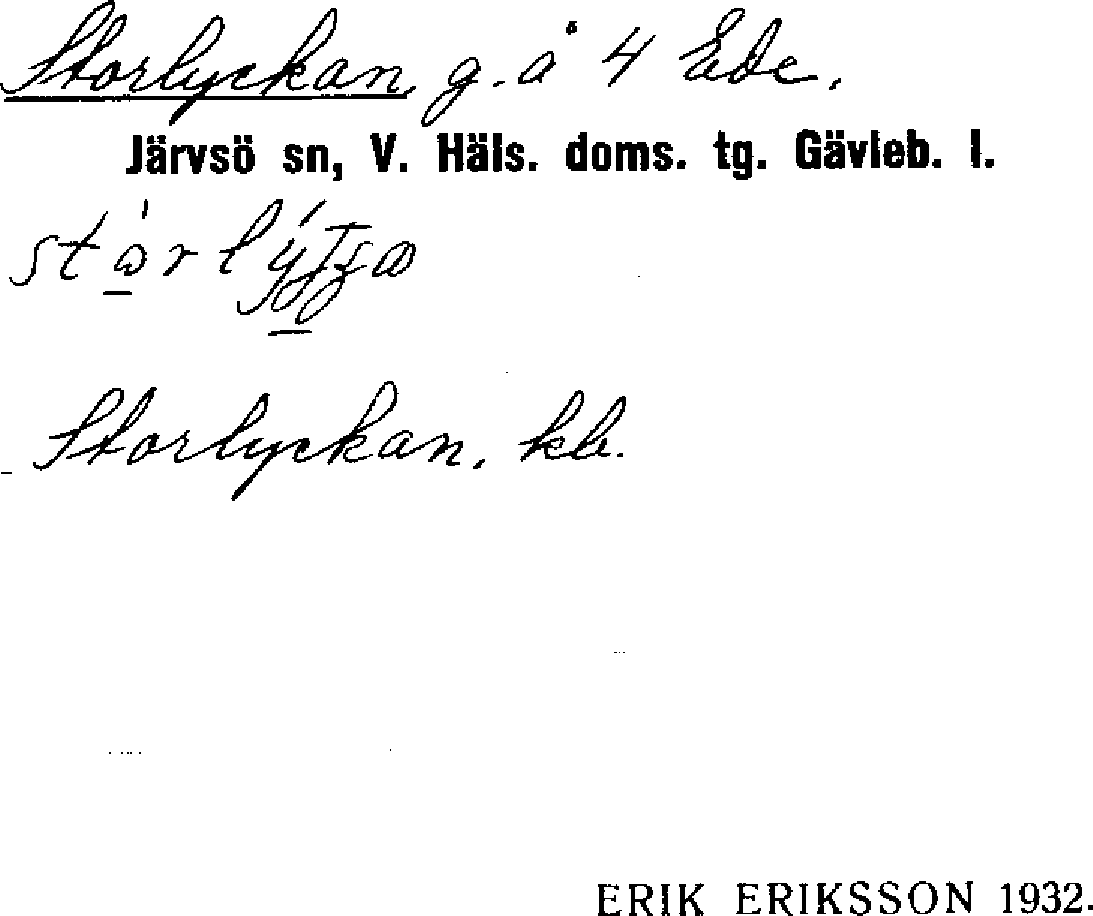 Storlyckan, g. å 4 Ede.
Järvsö sn, V. Häls. doms. tg. Gävleb. l.
Storlyckan, kb.
ERIK ERIKSSON 1932.